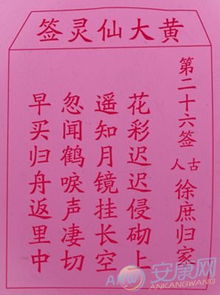 黄大仙灵签
第二十六签
古人 徐庶归家
花彩迟迟侵砌上
遥知月镜挂长空
忽闻鹤唳声凄切
早买归舟返里中
安康网
ANKANGWANG